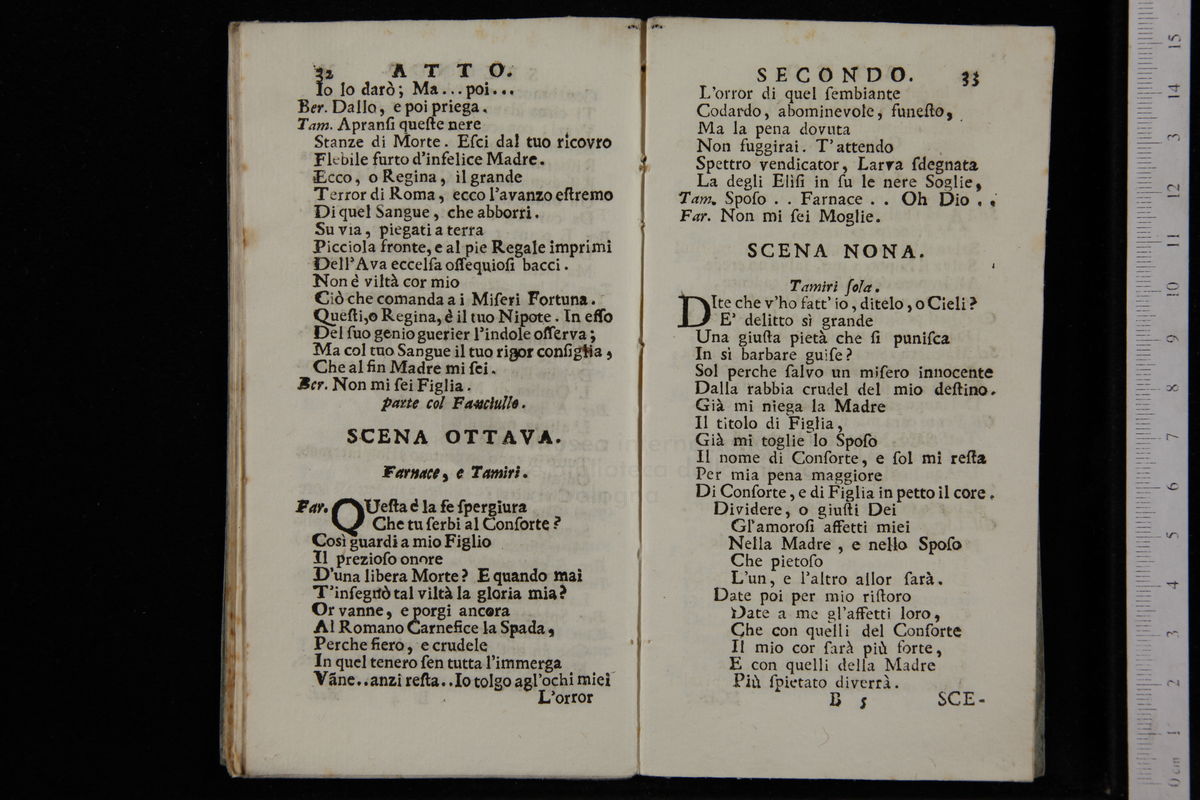 32 ATTO.
Io lo darò; Ma...poi...
Ber. Dallo, e poi priega.
Tam. Apranſi queſte nere
Stanze di Morte. Eſci dal tuo ricovro
Flebile furto d'infelice Madre.
Ecco, o Regina, il grande
Terror di Roma, ecco l'avanzo eſtremo
Di quel Sangue, che abborri.
Su via, piegati a terra
Picciola fronte, e al piè Regale imprimi
Dell'Ava eccelſa oſſequioſi bacci.
Non è viltà cor mio
Ciò che comanda a i Miſeri Fortuna.
Queſti, o Regina, è il tuo Nipote. In eſſo
Del ſuo genio guerier l'indole oſſerva;
Ma col tuo Sangue il tuo rigor conſiglia,
Che al fin Madre mi ſei.
Ber. Non mi ſei Figlia.
parte col Fanciullo.
SCENA OTTAVA.
Farnace, e Tamiri.
Far. QUeſta è la fe ſpergiura
Che tu ſerbi al Conſorte?
Così guardi a mio Figlio
Il prezioſo onore
D'una libera Morte? E quando mai
T'inſegnò tal viltà la gloria mia?
Or vanne, e porgi ancora
Al Romano Carnefice la Spada,
Perche fiero, e crudele
In quel tenero ſen tutta l'immerga
Vãne..anzi reſta..Io tolgo agl'ochi miei
L'orror
SECONDO. 33
L'orror di quel ſembiante
Codardo, abominevole, funeſto,
Ma la pena dovuta
Non fuggirai. T'attendo
Spettro vendicator, Larva ſdegnata
La degli Eliſi in ſu le nere Soglie,
Tam. Spoſo . . Farnace . . Oh Dio . .
Far. Non mi ſei Moglie.
SCENA NONA.
Tamiri ſola.
DIte che v'ho fatt' io, ditelo, o Cieli?
E' delitto sì grande
Una giuſta pietà che ſi puniſca
In sì barbare guiſe?
Sol perche ſalvo un miſero innocente
Dalla rabbia crudel del mio deſtino.
Già mi niega la Madre
Il titolo di Figlia,
Già mi toglie lo Spoſo
Il nome di Conſorte, e ſol mi reſta
Per mia pena maggiore
Di Conſorte, e di Figlia in petto il core.
Dividere, o giuſti Dei
Gl'amoroſi affetti miei
Nella Madre, e nello Spoſo
Che pietoſo
L'un, e l'altro allor ſarà.
Date poi per mio riſtoro
Date a me gl'affetti loro,
Che con quelli del Conſorte
Il mio cor ſarà più forte,
E con quelli della Madre
Più ſpietato diverrà.
B 5 SCE-